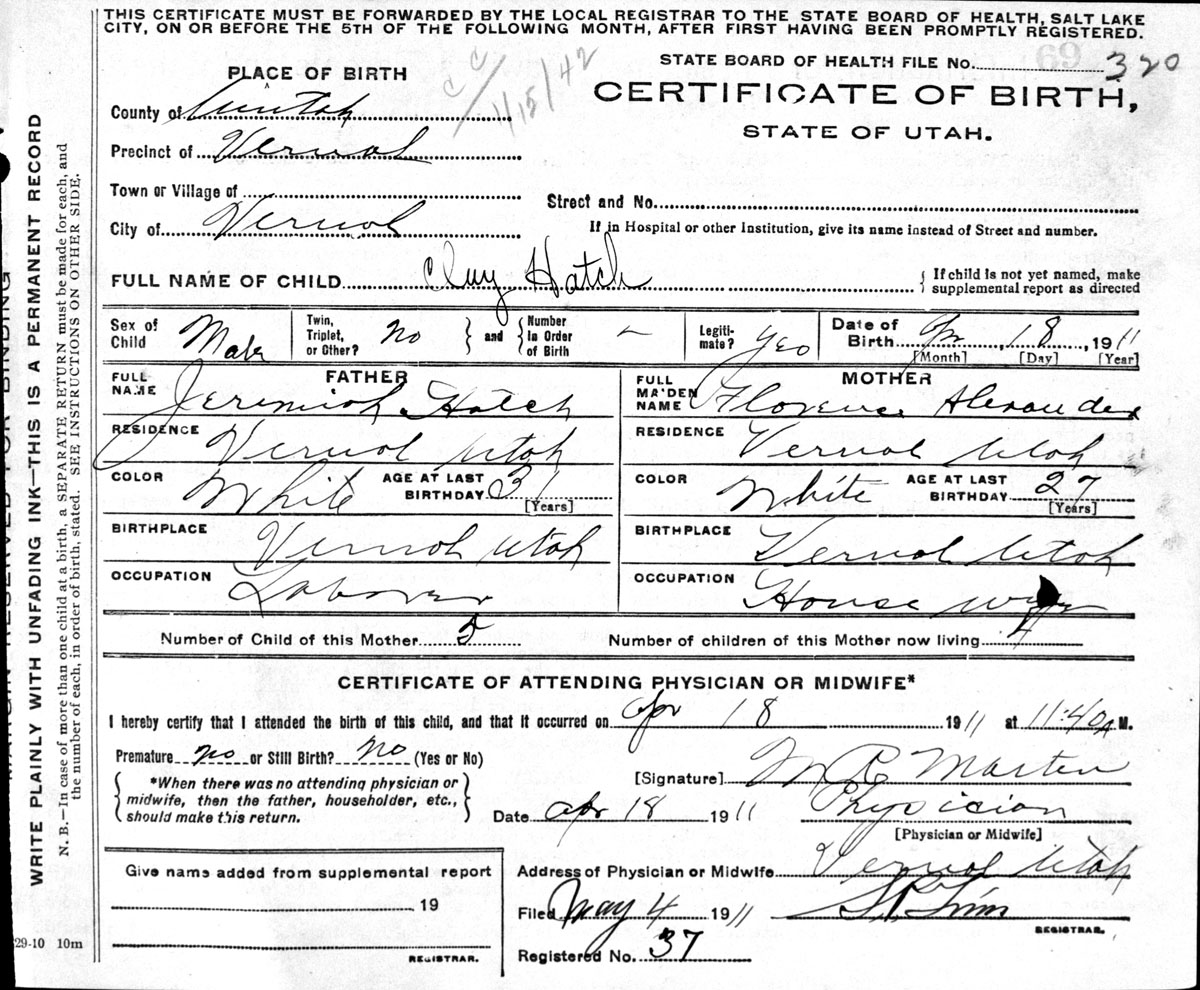 THIS CERTIFICATE MUST BE FORWARDED BY THE LOCAL REGISTRAR TO THE STATE BOARD OF HEALTH, SALT LAKE
CITY, ON OR BEFORE THE 5TH OF THE FOLLOWING MONTH, AFTER FIRST HAVING BEEN PROMPTLY REGISTERED.
STATE BOARD OF HEALTH FILE No. 320
CC 1/15/42
PLACE OF BIRTH
CERTIFICATE OF BIRTH,
STATE OF UTAH.
County of Uintah
Precinct of Vernal
Town or Village of
Street and No.
City of Vernal
If in Hospital or other Institution, give its name instead of Street and number.
FULL NAME OF CHILD Hatch
{ If child is not yet named, make
supplemental report as directed
Sex of Child Male
Twin, Triplet, or Other? No } and { Number in Order of Birth –
Legitimate? Yes
Date of Birth Apr, 18, 1911
[Month] [Day] [Year]
FATHER
FULL NAME Jeremiah Hatch
RESIDENCE Vernal Utah
COLOR White AGE AT LAST BIRTHDAY 31 [Years]
BIRTHPLACE Vernal Utah
OCCUPATION Laborer
MOTHER
FULL MAIDEN NAME Florence Alexander
RESIDENCE Vernal Utah
COLOR White AGE AT LAST BIRTHDAY 27 [Years]
BIRTHPLACE Vernal Utah
OCCUPATION House wife
Number of Child of this Mother 5 Number of children of this Mother now living 4
CERTIFICATE OF ATTENDING PHYSICIAN OR MIDWIFE*
I hereby certify that I attended the birth of this child, and that it occurred on Apr 18 1911 at 11:40 A M.
Premature no or Still Birth? No (Yes or No)
{ *When there was no attending physician or
midwife, then the father, householder, etc.,
should make this return. }
[Signature] Marten
Date Apr 18 1911 Physician
[Physician or Midwife]
Give name added from supplemental report
19
REGISTRAR.
Address of Physician or Midwife Vernal Utah
Filed May 4 1911
REGISTRAR.
Registered No. 37
29-10 10m
MARGIN RESERVED FOR BINDING
WRITE PLAINLY WITH UNFADING INK—THIS IS A PERMANENT RECORD
N. B.—In case of more than one child at a birth, a SEPARATE RETURN must be made for each, and
the number of each, in order of birth, stated. SEE INSTRUCTIONS ON OTHER SIDE.